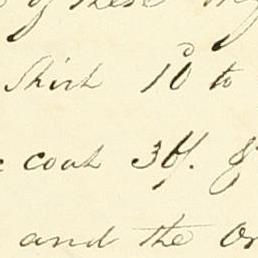 of these
Shirt 10 to
coat 36/. &
and the Or